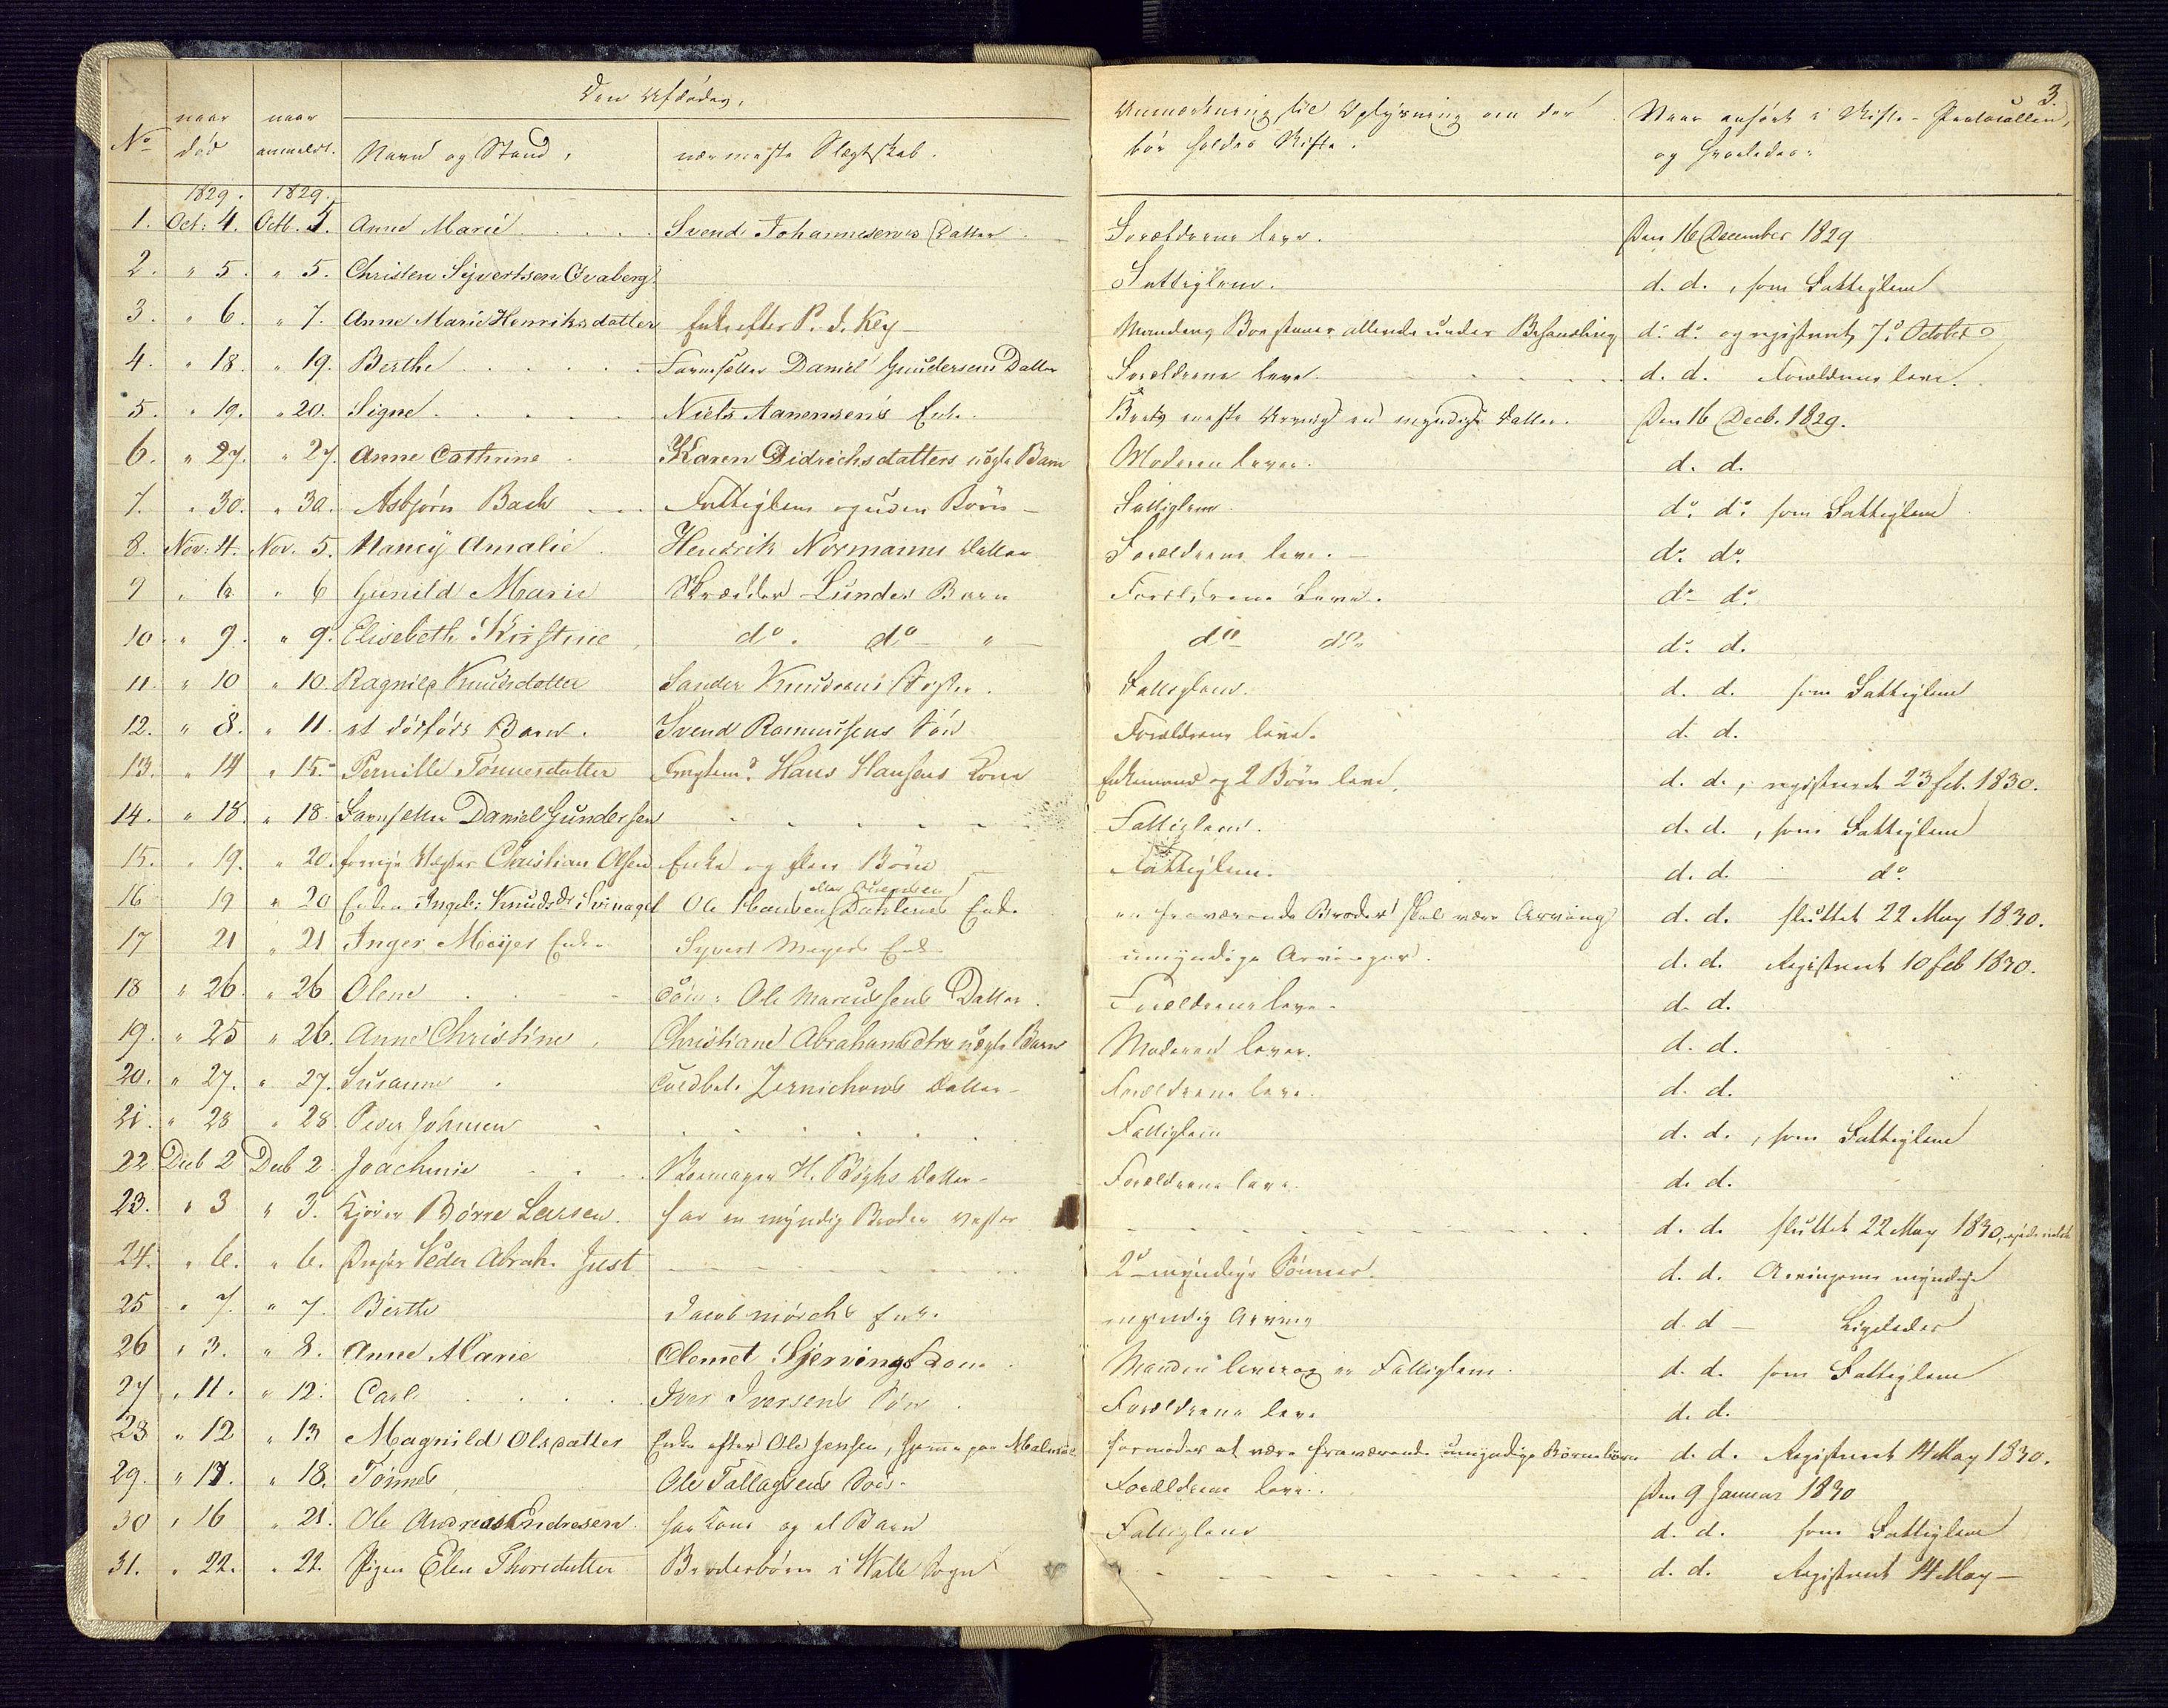 3.
Den Afdødes,
No
naar død
naar anmeldt.
Navn og Stand,
nærmeste Slægtskab.
Anmærkning til Oplysning om der bør holdes Skifte.
Naar anført i Skifte-Protocollen, og hvorledes:
1829. 1829.
1. Oct: 4. Octb. 5. Anne Marie Svend Johannesens Datter Forældrene leve. Den 16 December 1829
2. " 5. " 5. Christen Syvertsen Fattiglem. d. d., som Fattiglem
3. " 6. " 7. Anne Marie Henriksdatter Enke efter P. J. Key Mandens Boe allerede under Behandling do. do. og registreret 7de October
4. " 18. " 19. Berthe Daniel Gundersens Datter Forældrene leve. d. d. Forældrene leve.
5. " 19. " 20. Signe Niels Aanensens Enke. eneste Arving en myndig Datter. Den 16 Decb. 1829.
6. " 27. " 27. Anne Cathrine Karen Didrichsdatters uægte Barn Moderen lever. d. d.
7. " 30. " 30. Asbjørn Bach Fattiglem og uden Børn Fattiglem do. do. som Fattiglem
8. Nov: 4. Nov. 5. Nancÿ Amalie Hendrik Normanns Datter Forældrene leve. do. do.
9 " 6 " 6 Gunild Marie Skræder Lundes Barn Forældrene leve. do. do.
10. " 9. " 9. Elisebeth Kirstine do. do. " do. do. do. d.
11. " 10 " 10. Ragnild Knudsdatter Sander Knudsens Søster. Fattiglem. d. d. som Fattiglem
12. " 8. " 11. et dødfødt Barn. Svend Rasmussens Søn Forældrene leve. d. d.
13. " 14 " 15. Pernille Tønnesdatter Hans Hansens Kone Enkemand og 2 Børn leve. d. d., registreret 23 feb. 1830.
14. " 18. " 18. Daniel Gundersen Fattiglem. d. d., som Fattiglem
15. " 19. " 20. forrige Christian Olsen Enke og flere Børn Fattiglem. d. d. do.
16 19 " 20 Enken Ingeb: Knudsdr Svinager Ole Hansen (eller Dahlens Enke en fraværende Broder skal være Arving d. d. sluttet 22 May 1830.
17 21 " 21 Inger Meÿer Enke Syvert Meyers Enke umyndige Arvinger. d. d. Registreret 10 feb 1830.
18 " 26. " 26 Olene Ole Marcussens Datter. Forældrene leve. d. d.
19. " 25 " 26. Anne Christine Christiane Abrahamsdtrs uægte Barn Moderen lever. d. d.
20. " 27. " 27. Susanne Toldbet. Jernichows Datter Forældrene leve. d. d.
21. " 28 " 28 Peder Johnsen Fattiglem d. d., som Fattiglem
22 Decb 2 Decb 2. Joachmie H. Bøghs Datter Forældrene leve. d. d.
23. " 3 " 3. Børre Larsen. har en myndig Broder d. d. sluttet 22 May 1830,
24. " 6. " 6. Peder Abrah. Just 2 myndige Sønner. d. d. Arvingerne myndige
25 " 7. " 7. Berthe Jacob Mørchs Enke myndig Arving d. d Ligeledes
26 " 3. " 8. Anne Marie Clemet Gjervings Kone Manden lever og er Fattiglem. d. d. som Fattiglem
27 " 11. " 12. Carl Iver Iversens Søn Forældrene leve d. d.
28 " 12 " 13 Magnild Olsdatter Enke efter Ole Jensen, hjemme paa Malmøe formodes at være fraværende umyndige Børnebørn d. d. Registreret 14 May 1830.
29. " 17. " 18. Tønnes Ole Tallagsens Søn. Forældrene leve. Den 9 Januar 1830
30 " 16 " 21. Ole Andreas Endresen har Kone og et Barn Fattiglem d. d. som Fattiglem
31. " 22. " 22. Pigen Elen Thorsdatter Broderbørn i Halle Sogn d. d. Registreret 14 May